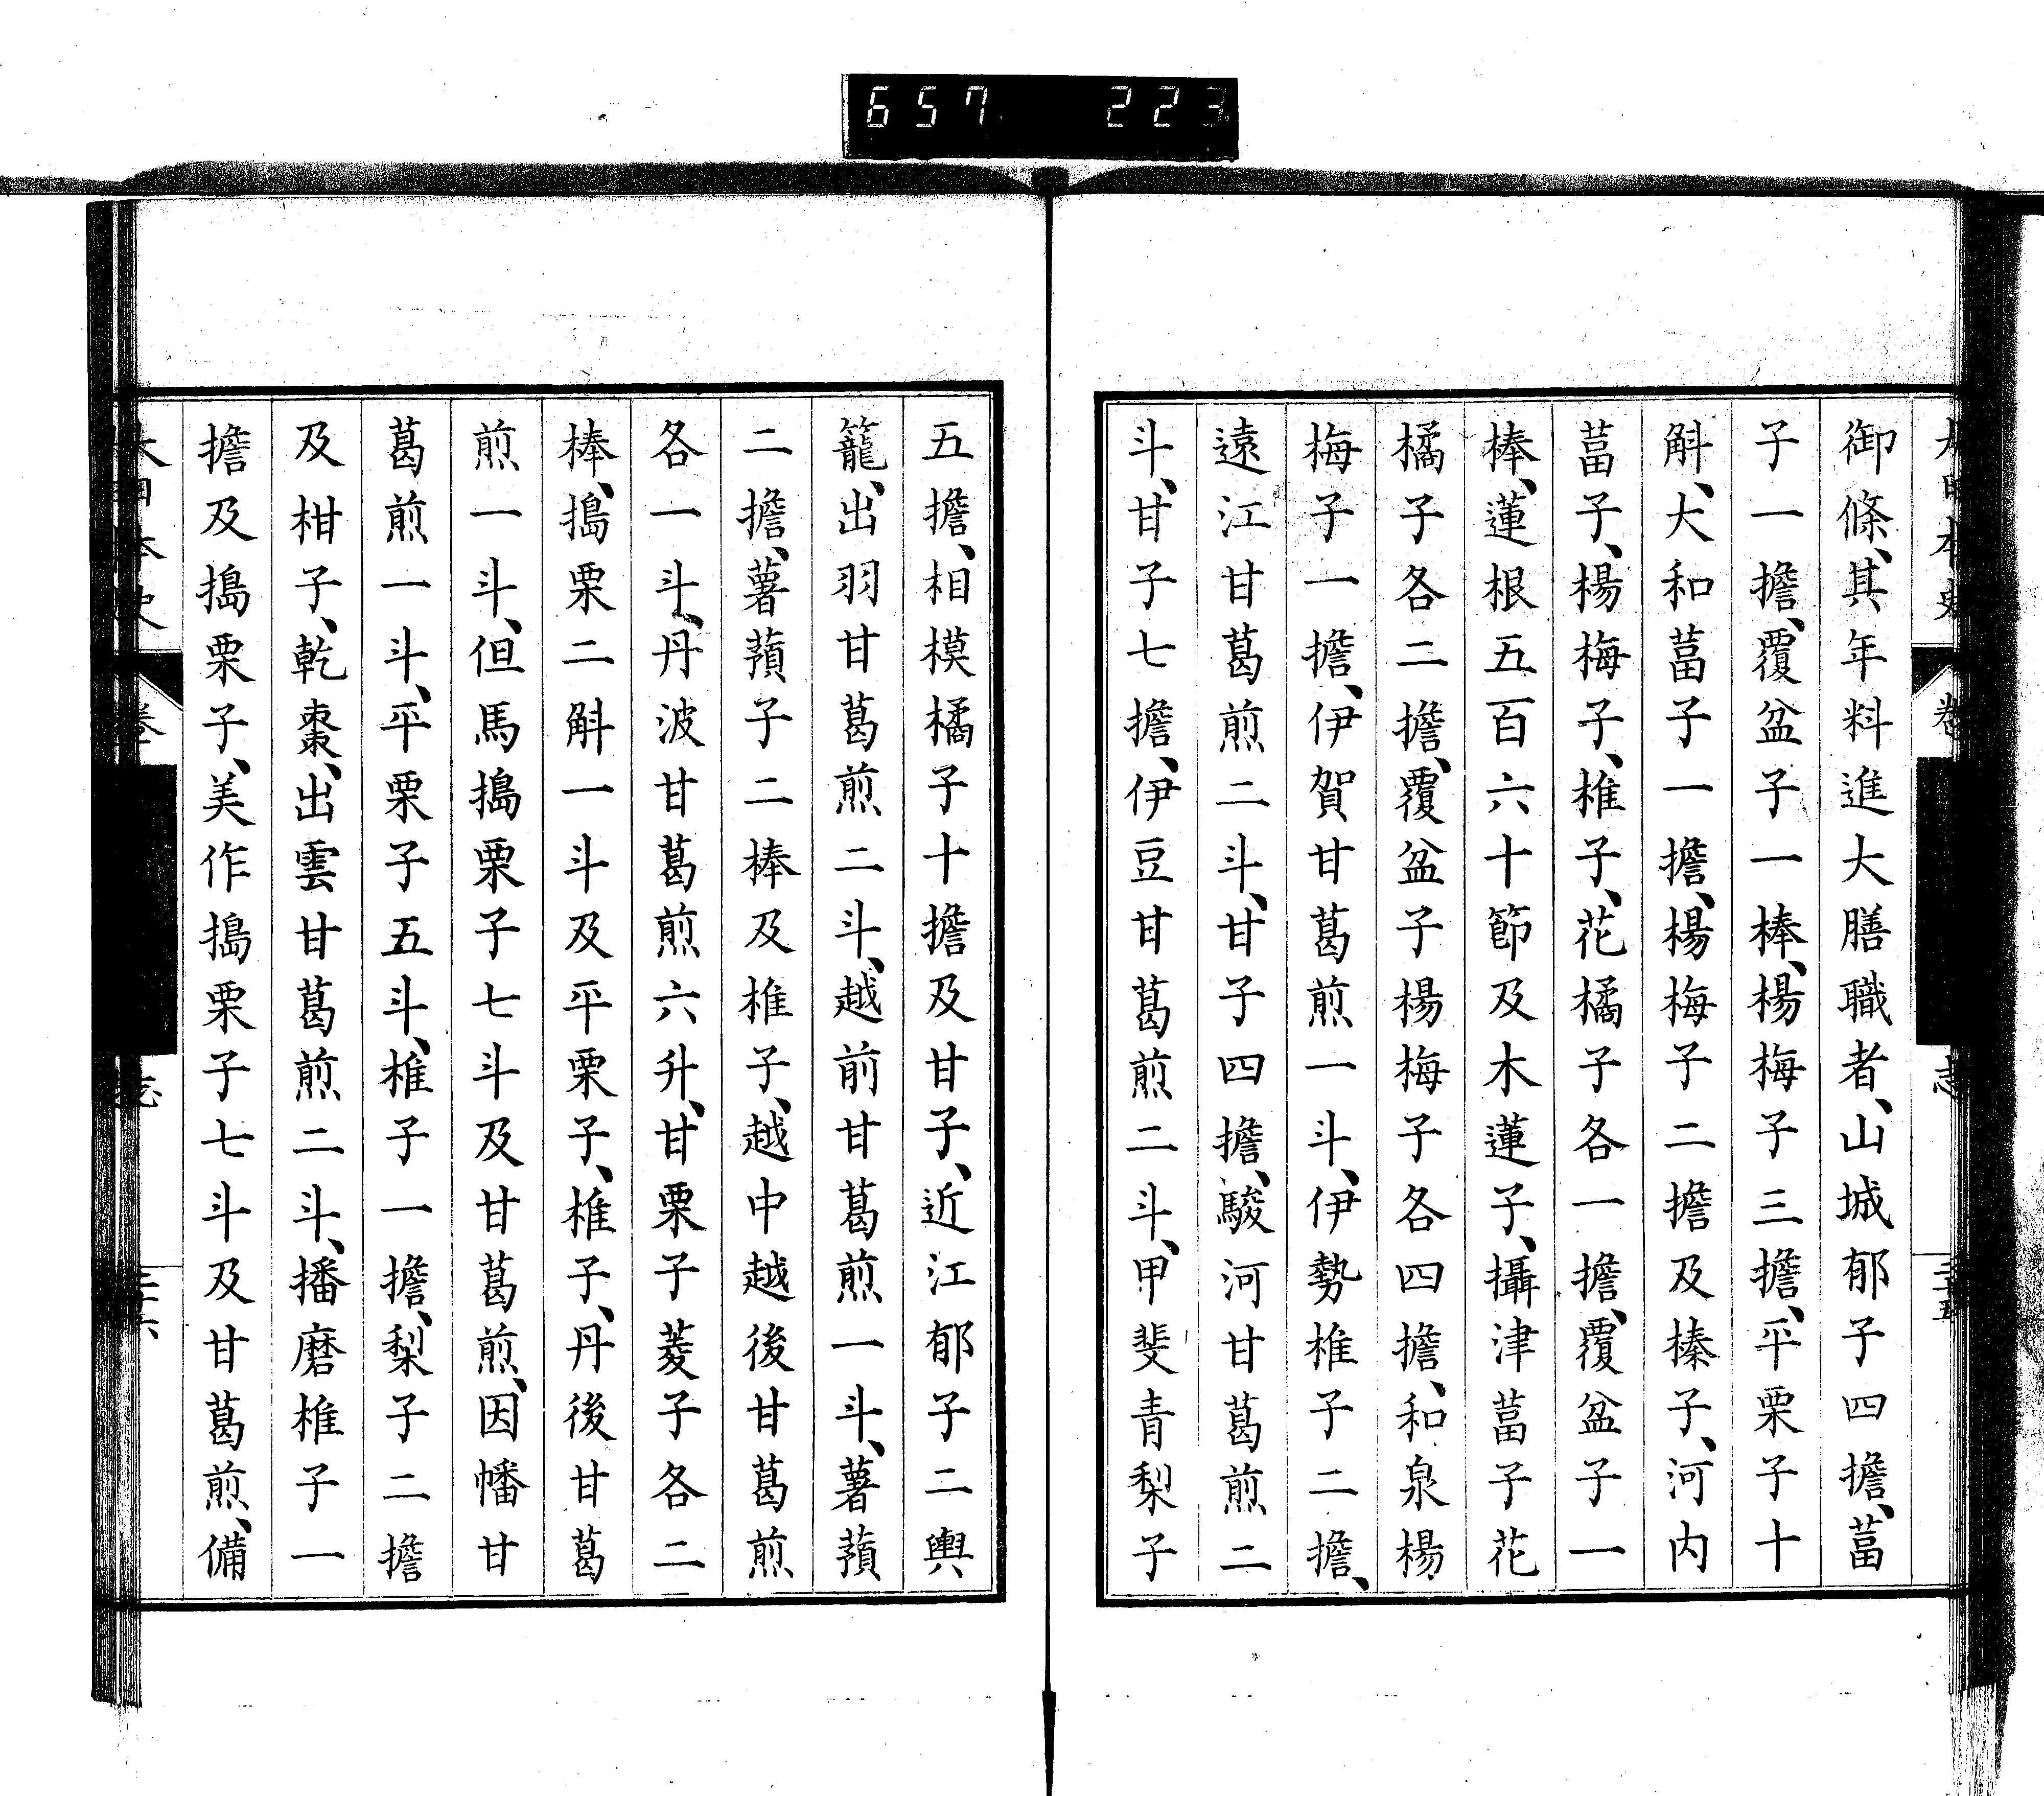 657 223
大日本史 卷 志 三十五
御條、其年料進大膳職者、山城郁子四擔、葍
子一擔、覆盆子一棒、楊梅子三擔、平栗子十
斛、大和葍子一擔、楊梅子二擔及榛子、河内
葍子、楊梅子、椎子、花橘子各一擔、覆盆子一
棒、蓮根五百六十節及木蓮子、攝津葍子花
橘子各二擔、覆盆子楊梅子各四擔、和泉楊
梅子一擔、伊賀甘葛煎一斗、伊勢椎子二擔、
遠江甘葛煎二斗、甘子四擔、駿河甘葛煎二
斗、甘子七擔、伊豆甘葛煎二斗、甲斐青梨子
五擔、相模橘子十擔及甘子、近江郁子二輿
籠、出羽甘葛煎二斗、越前甘葛煎一斗、薯蕷
二擔、薯蕷子二棒及椎子、越中越後甘葛煎
各一斗、丹波甘葛煎六升、甘栗子菱子各二
棒、搗栗二斛一斗及平栗子、椎子、丹後甘葛
煎一斗、但馬搗栗子七斗及甘葛煎、因幡甘
葛煎一斗、平栗子五斗、椎子一擔、梨子二擔
及柑子、乾棗、出雲甘葛煎二斗、播磨椎子一
擔及搗栗子、美作搗栗子七斗及甘葛煎、備
大日本史 卷 志 三十六